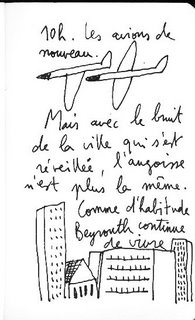 10h. Les avions de
nouveau.
Mais avec le bruit
de la ville qui s'est
réveillée, l'angoisse
n'est plus la même.
Comme d'habitude
Beyrouth continue
de vivre.